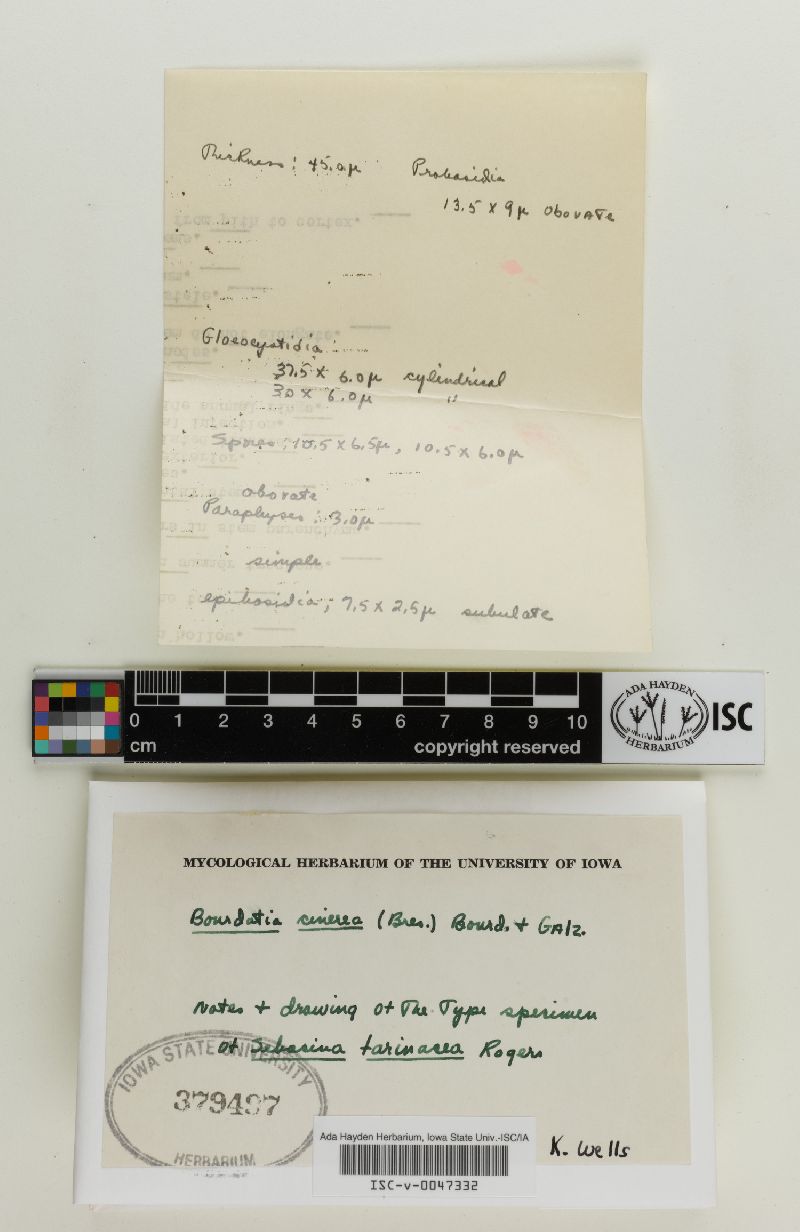 Thickness: 45.0μ Probasidia
13.5 x 9μ obovate
from pith to cortex.
Gloeocystidia
37.5 x 6.0μ cylindrical
30 x 6.0μ "
Spores: 10.5 x 6.5μ, 10.5 x 6.0μ
obovate
Paraphyses: 3.0μ
simple
epibasidia; 7.5 x 2.5μ subulate
hollow.
0 1 2 3 4 5 6 7 8 9 10
cm copyright reserved
ADA HAYDEN
HERBARIUM
ISC
MYCOLOGICAL HERBARIUM OF THE UNIVERSITY OF IOWA
Bourdotia cinerea (Bres.) Bourd. + Galz.
notes + drawing of the Type specimen
of Sebacina farinacea Rogers
IOWA STATE UNIVERSITY
379497
HERBARIUM
Ada Hayden Herbarium, Iowa State Univ.-ISC/IA
ISC-v-0047332
K. Wells